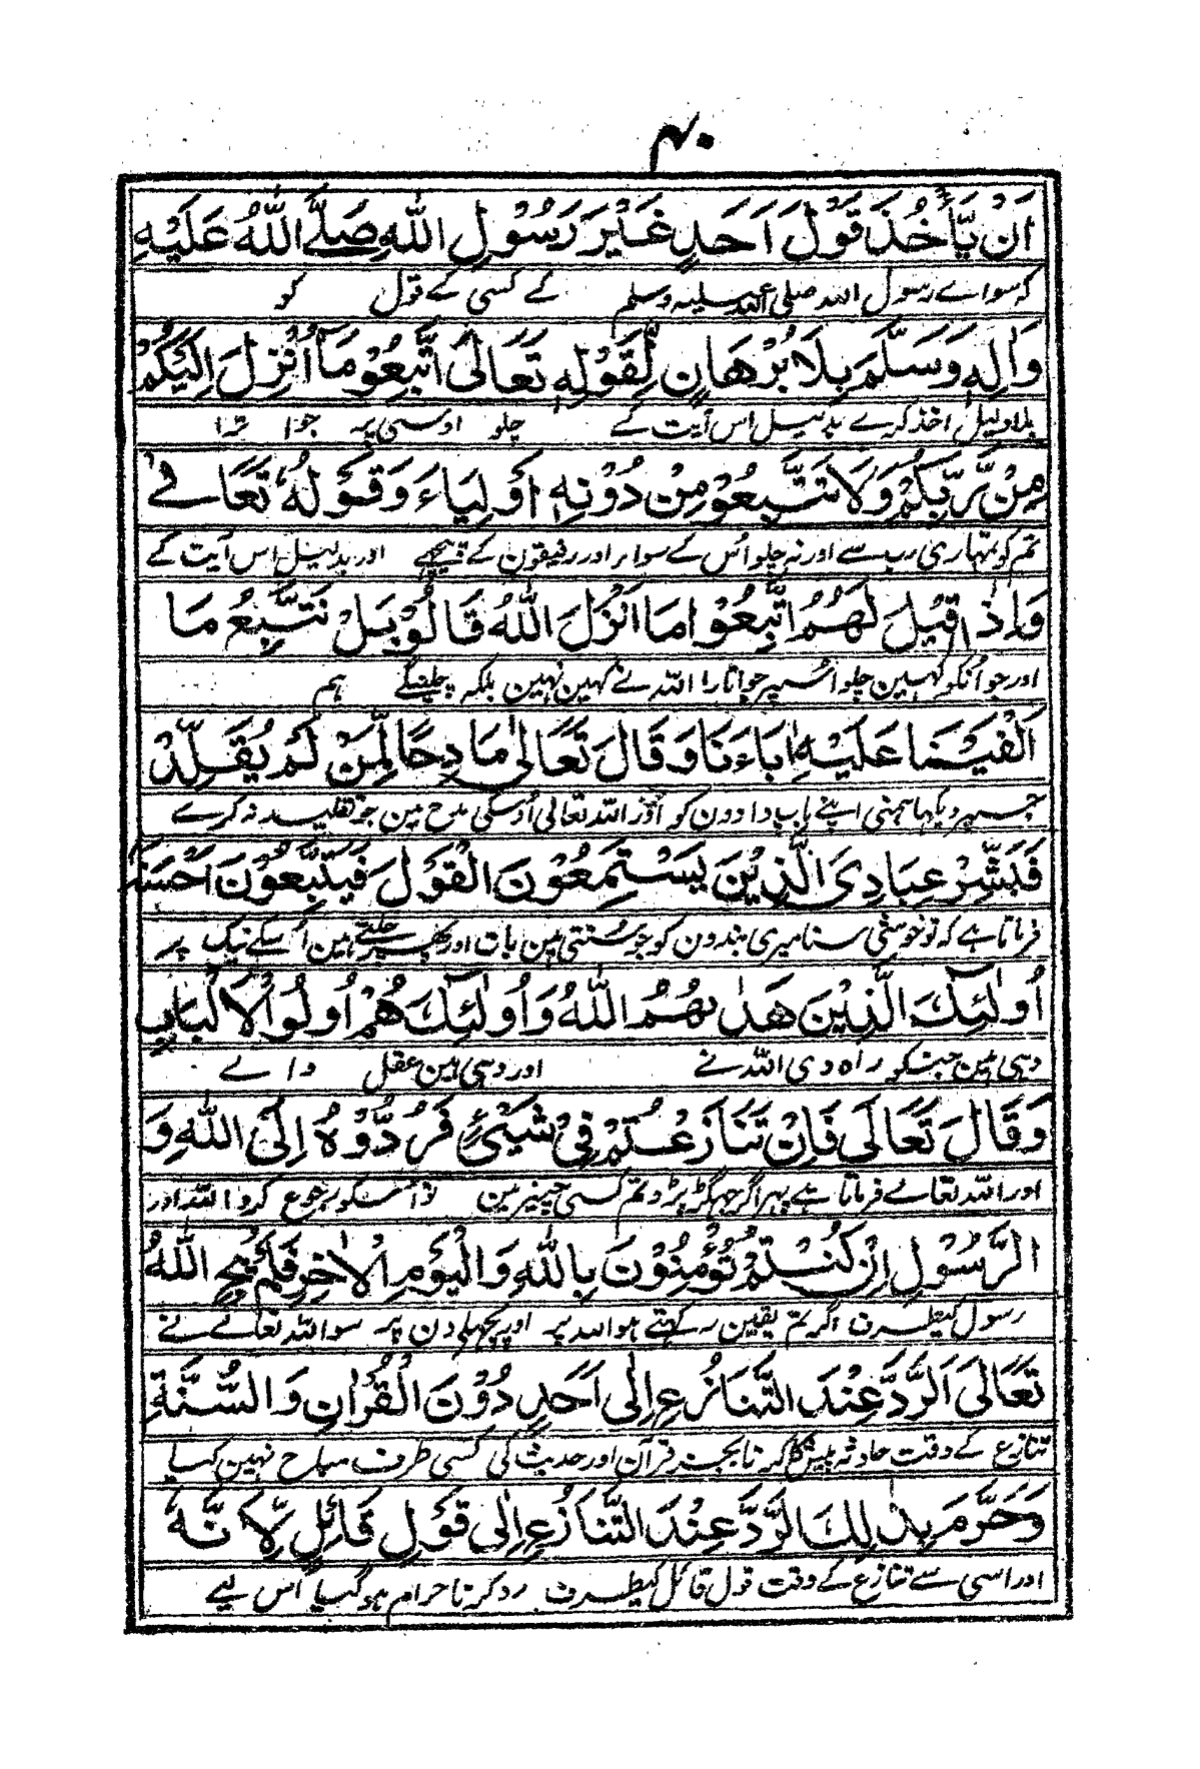 ۴۰
اَنْ يَّأْخُذَ قَوْلَ اَحَدٍ غَيْرَ رَسُوْلِ اللّٰهِ صَلَّے اللّٰهُ عَلَيْهِ
کہ سواے رسول اللہ صلی اللہ علیہ وسلم کے کسی کے قول کو
وَاٰلِهٖ وَسَلَّمَ بِلَا بُرْهَانٍ لِّقَوْلِهٖ تَعَالٰى اتَّبِعُوْ مَآ اُنْزِلَ اِلَيْكُمْ
بلا دلیل اخذ کرے بدلیل اس آیت کے چلو اوسی پر جو اترا
مِنْ رَّبِّكُمْ وَلَا تَتَّبِعُوْ مِنْ دُوْنِهٖ اَوْلِيَاءَ وَقَوْلُهٗ تَعَالٰے
تمکو تمہاری رب سے اور نہ چلو اُس کے سوا اور رفیقون کے پیچہے اور بدلیل اس آیت کے
وَاِذَا قِيْلَ لَهُمُ اتَّبِعُوْا مَا اَنْزَلَ اللّٰهُ قَالُوْ بَلْ نَتَّبِعُ مَا
اور جو اُنکو کہین چلو اُسپر جو اتارا اللہ نے کہین نہین بلکہ چلینگے ہم
اَلْفَيْنَا عَلَيْهِ اٰبَاءَنَا وَقَالَ تَعَالٰى مَادِحًا لِّمَنْ لَمْ يُقَلِّدْ
جسپر دیکہا ہمنی اپنے باپ دادون کو اور اللہ تعالی اُوسکی مدح مین جو تقلید نہ کرے
فَبَشِّرْ عِبَادِىَ الَّذِيْنَ يَسْتَمِعُوْنَ الْقَوْلَ فَيَتَّبِعُوْنَ اَحْسَنَهٗ
فرماتا ہے کہ تو خوشی سنا میری بندون کو جو سنتی ہین بات اور پہر چلتے ہین اُسکے نیک پر
اُولٰئِكَ الَّذِيْنَ هَدٰىهُمُ اللّٰهُ وَاُولٰئِكَ هُمْ اُولُوا الْاَلْبَابِ
وہی ہین جنکو راہ دی اللہ نے اور وہی ہین عقل والے
وَقَالَ تَعَالٰى فَاِنْ تَنَازَعْتُمْ فِىْ شَيْئٍ فَرُدُّوْهُ اِلَى اللّٰهِ وَ
اور اللہ تعالے فرماتا ہے پہر اگر جہگڑ پڑو تم کسی چیز مین تو اسکو رجوع کرو اللہ اور
الرَّسُوْلِ اِنْ كُنْتُمْ تُؤْمِنُوْنَ بِاللّٰهِ وَالْيَوْمِ الْاٰخِرِ فَلَمْ يُبِحِ اللّٰهُ
رسول کیطرف اگر تم یقین رکہتے ہو اللہ پر اور پچہلے دن پر سو اللہ تعالے نے
تَعَالٰى الرَّدَّ عِنْدَ التَّنَازُعِ اِلٰى اَحَدٍ دُوْنَ الْقُرْاٰنِ وَالسُّنَّةِ
تنازع کے وقت حادثہ پیش کر نا بجز قرآن اور حدیث کی کسی طرف مباح نہین کیا
وَحَرَّمَ بِذٰلِكَ الرَّدَّ عِنْدَ التَّنَازُعِ اِلٰى قَوْلِ قَائِلٍ لِاَنَّهٗ
اور اسی سے تنازع کے وقت قول قائل کیطرف رد کرنا حرام ہو گیا اس لیے